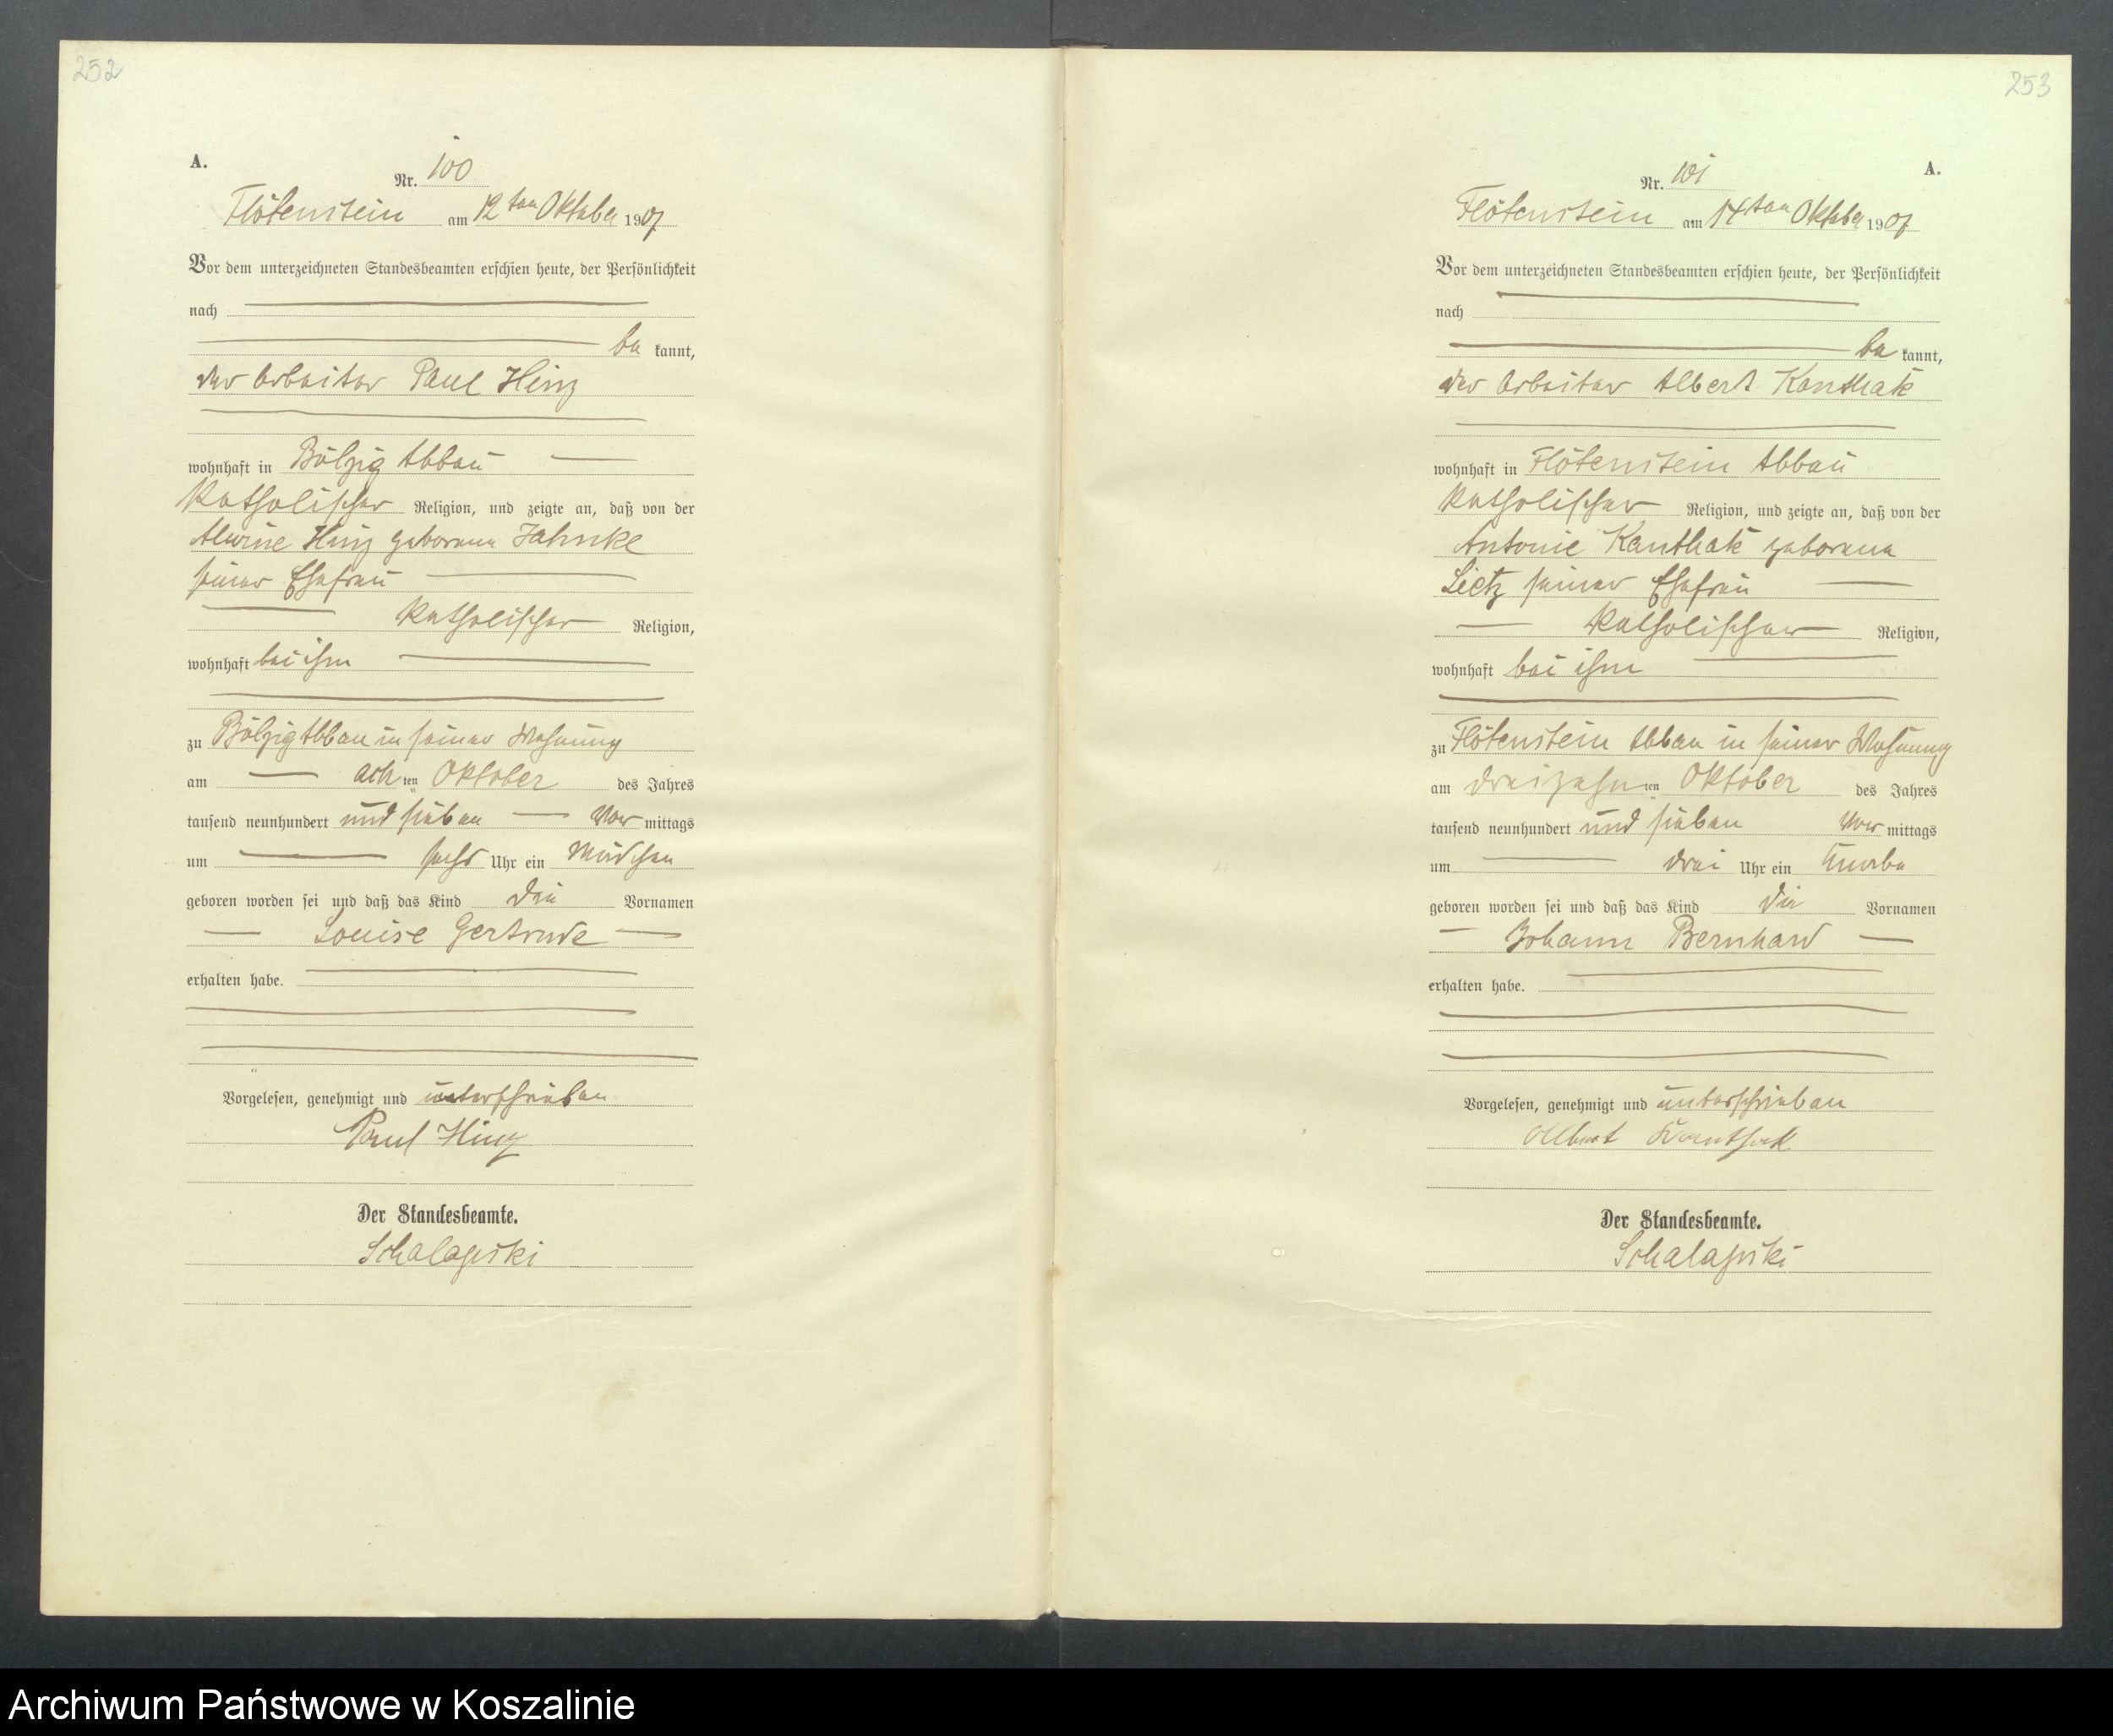 252
A.
Nr. 100
Flötenstein am 12ten Oktober 1907
Vor dem unterzeichneten Standesbeamten erschien heute, der Persönlichkeit
nach
be kannt,
der Arbeiter Paul Hinz
wohnhaft in Bölzig Abbau
katholischer Religion, und zeigte an, daß von der
Alwine Hinz geborene Jahnke
seiner Ehefrau
katholischer Religion,
wohnhaft bei ihm
zu Bölzig Abbau in seiner Wohnung
am achten Oktober des Jahres
tausend neunhundert und sieben Vor mittags
um sechs Uhr ein Mädchen
geboren worden sei und daß das Kind die Vornamen
Louise Gertrude
erhalten habe.
Vorgelesen, genehmigt und unterschrieben
Paul Hinz
Der Standesbeamte.
Schalapski
253
A.
Nr. 101
Flötenstein am 14ten Oktober 1907
Vor dem unterzeichneten Standesbeamten erschien heute, der Persönlichkeit
nach
be kannt,
der Arbeiter Albert Kanthak
wohnhaft in Flötenstein Abbau
katholischer Religion, und zeigte an, daß von der
Antonie Kanthak geborene
Lietz seiner Ehefrau
katholischer Religion,
wohnhaft bei ihm
zu Flötenstein Abbau in seiner Wohnung
am dreizehnten Oktober des Jahres
tausend neunhundert und sieben Vor mittags
um drei Uhr ein Knabe
geboren worden sei und daß das Kind die Vornamen
Johann Bernhard
erhalten habe.
Vorgelesen, genehmigt und unterschrieben
Albert Kanthak
Der Standesbeamte.
Schalapski
Archiwum Państwowe w Koszalinie